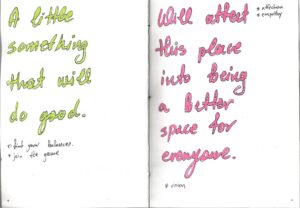 A little
something
that will
do good.
* find your balances.
* join the game
Will affect
* affection
* empathy
this place
into being
a better
space for
everyone.
* vision